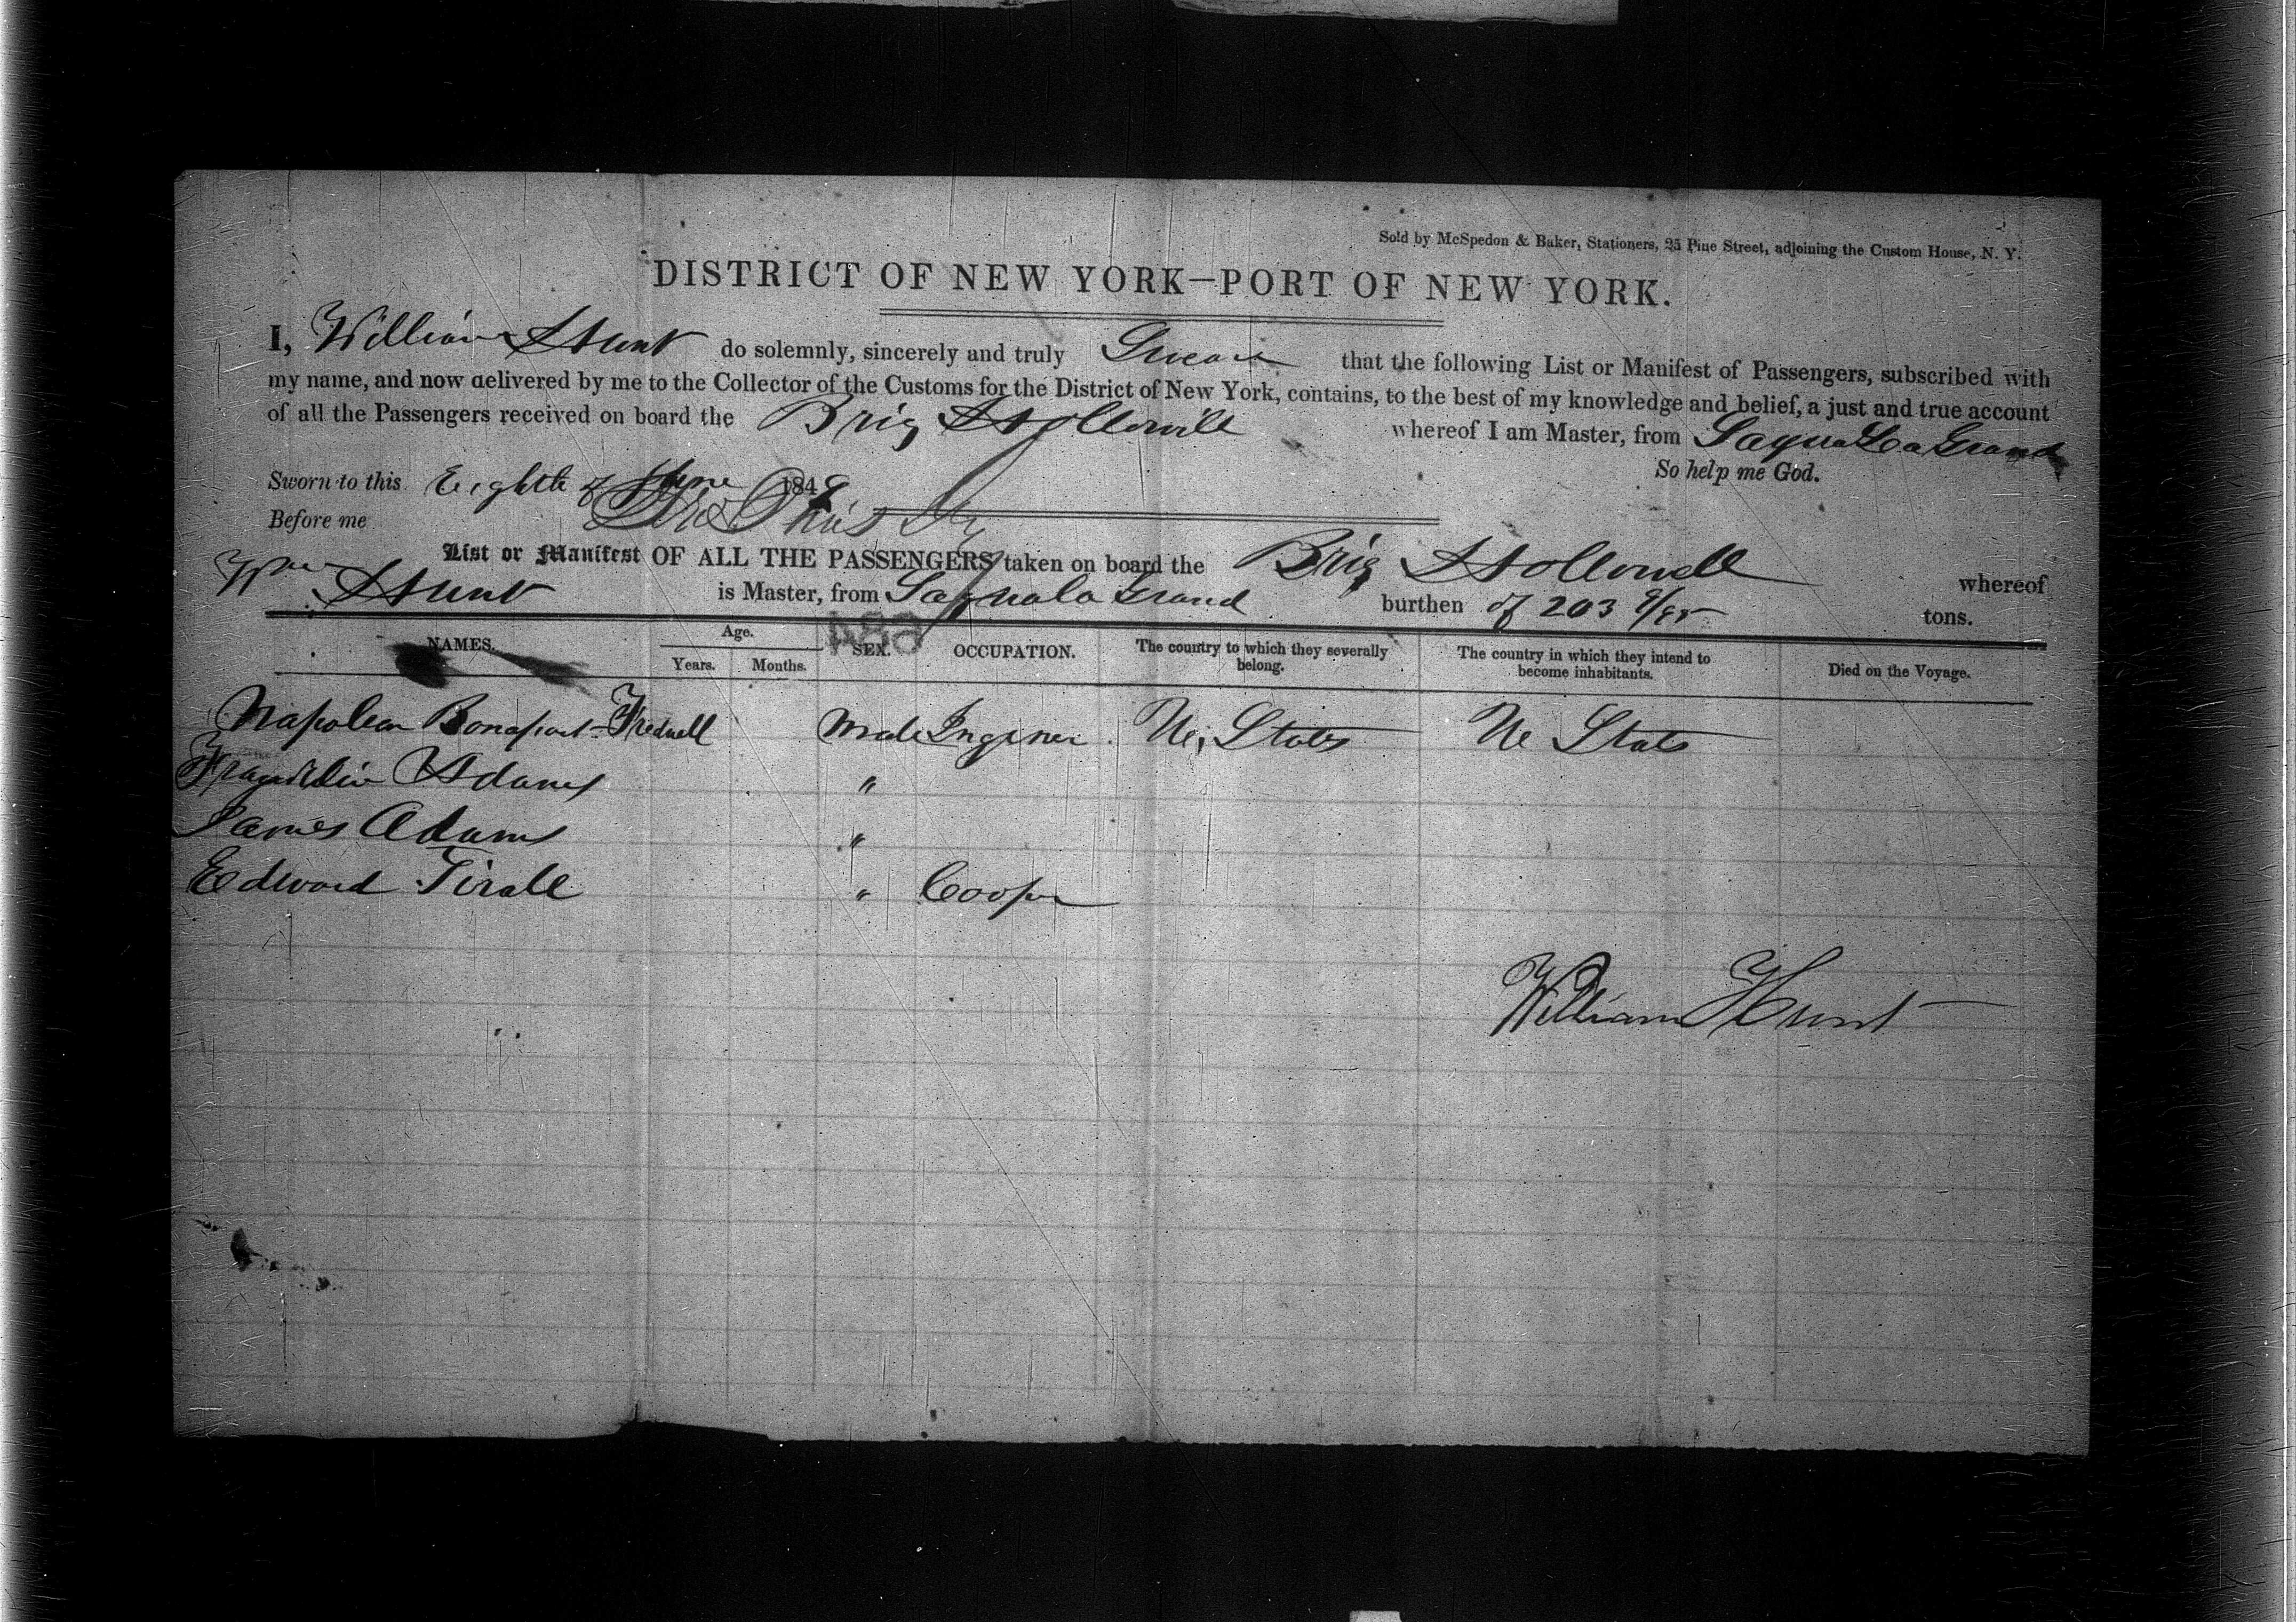 Sold by McSpedon & Baker, Stationers, 25 Pine Street, adjoining the Custom House, N. Y.
DISTRICT OF NEW YORK—PORT OF NEW YORK.
I, William Hunt do solemnly, sincerely and truly Swear that the following List or Manifest of Passengers, subscribed with
my name, and now delivered by me to the Collector of the Customs for the District of New York, contains, to the best of my knowledge and belief, a just and true account
of all the Passengers received on board the Brig Hollowell whereof I am Master, from Sagua La Grand
So help me God.
Sworn to this Eighth of June 184
Before me
List or Manifest OF ALL THE PASSENGERS taken on board the Brig Hollowell whereof
Wm Hunt is Master, from Sagua la Grand burthen of 203 9/95 tons.
NAMES. Age. Years. Months. SEX. OCCUPATION. The country to which they severally belong. The country in which they intend to become inhabitants. Died on the Voyage.
Napolean Bonapart Tredwell Male Inginer Un States Un Stats
Adams "
James Adams "
Edward Tirall " Cooper
William Hunt